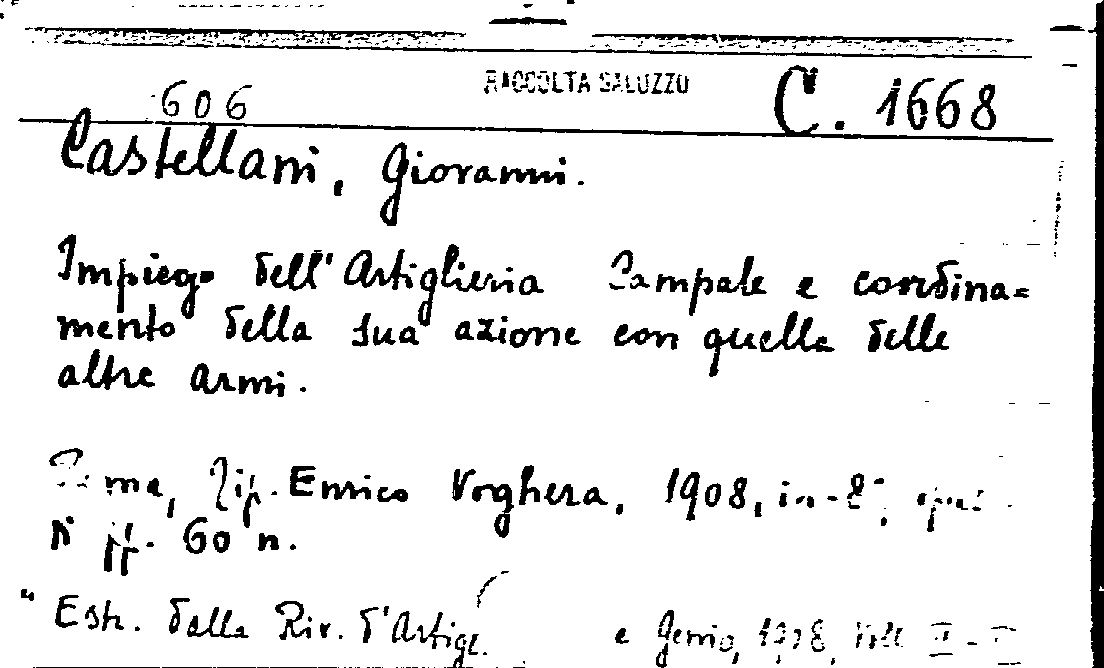 RACCOLTA SALUZZO
606 C. 1668
Castellani, Giovanni.
Impiego dell'Artiglieria Campale e coordina=
mento della sua azione con quella delle
altre armi.
Roma, Tip. Enrico Voghera, 1908, in-8°,
pp. 60 n.
"Estr. dalla Riv. d'Artigl. e Genio, 1908, Voll